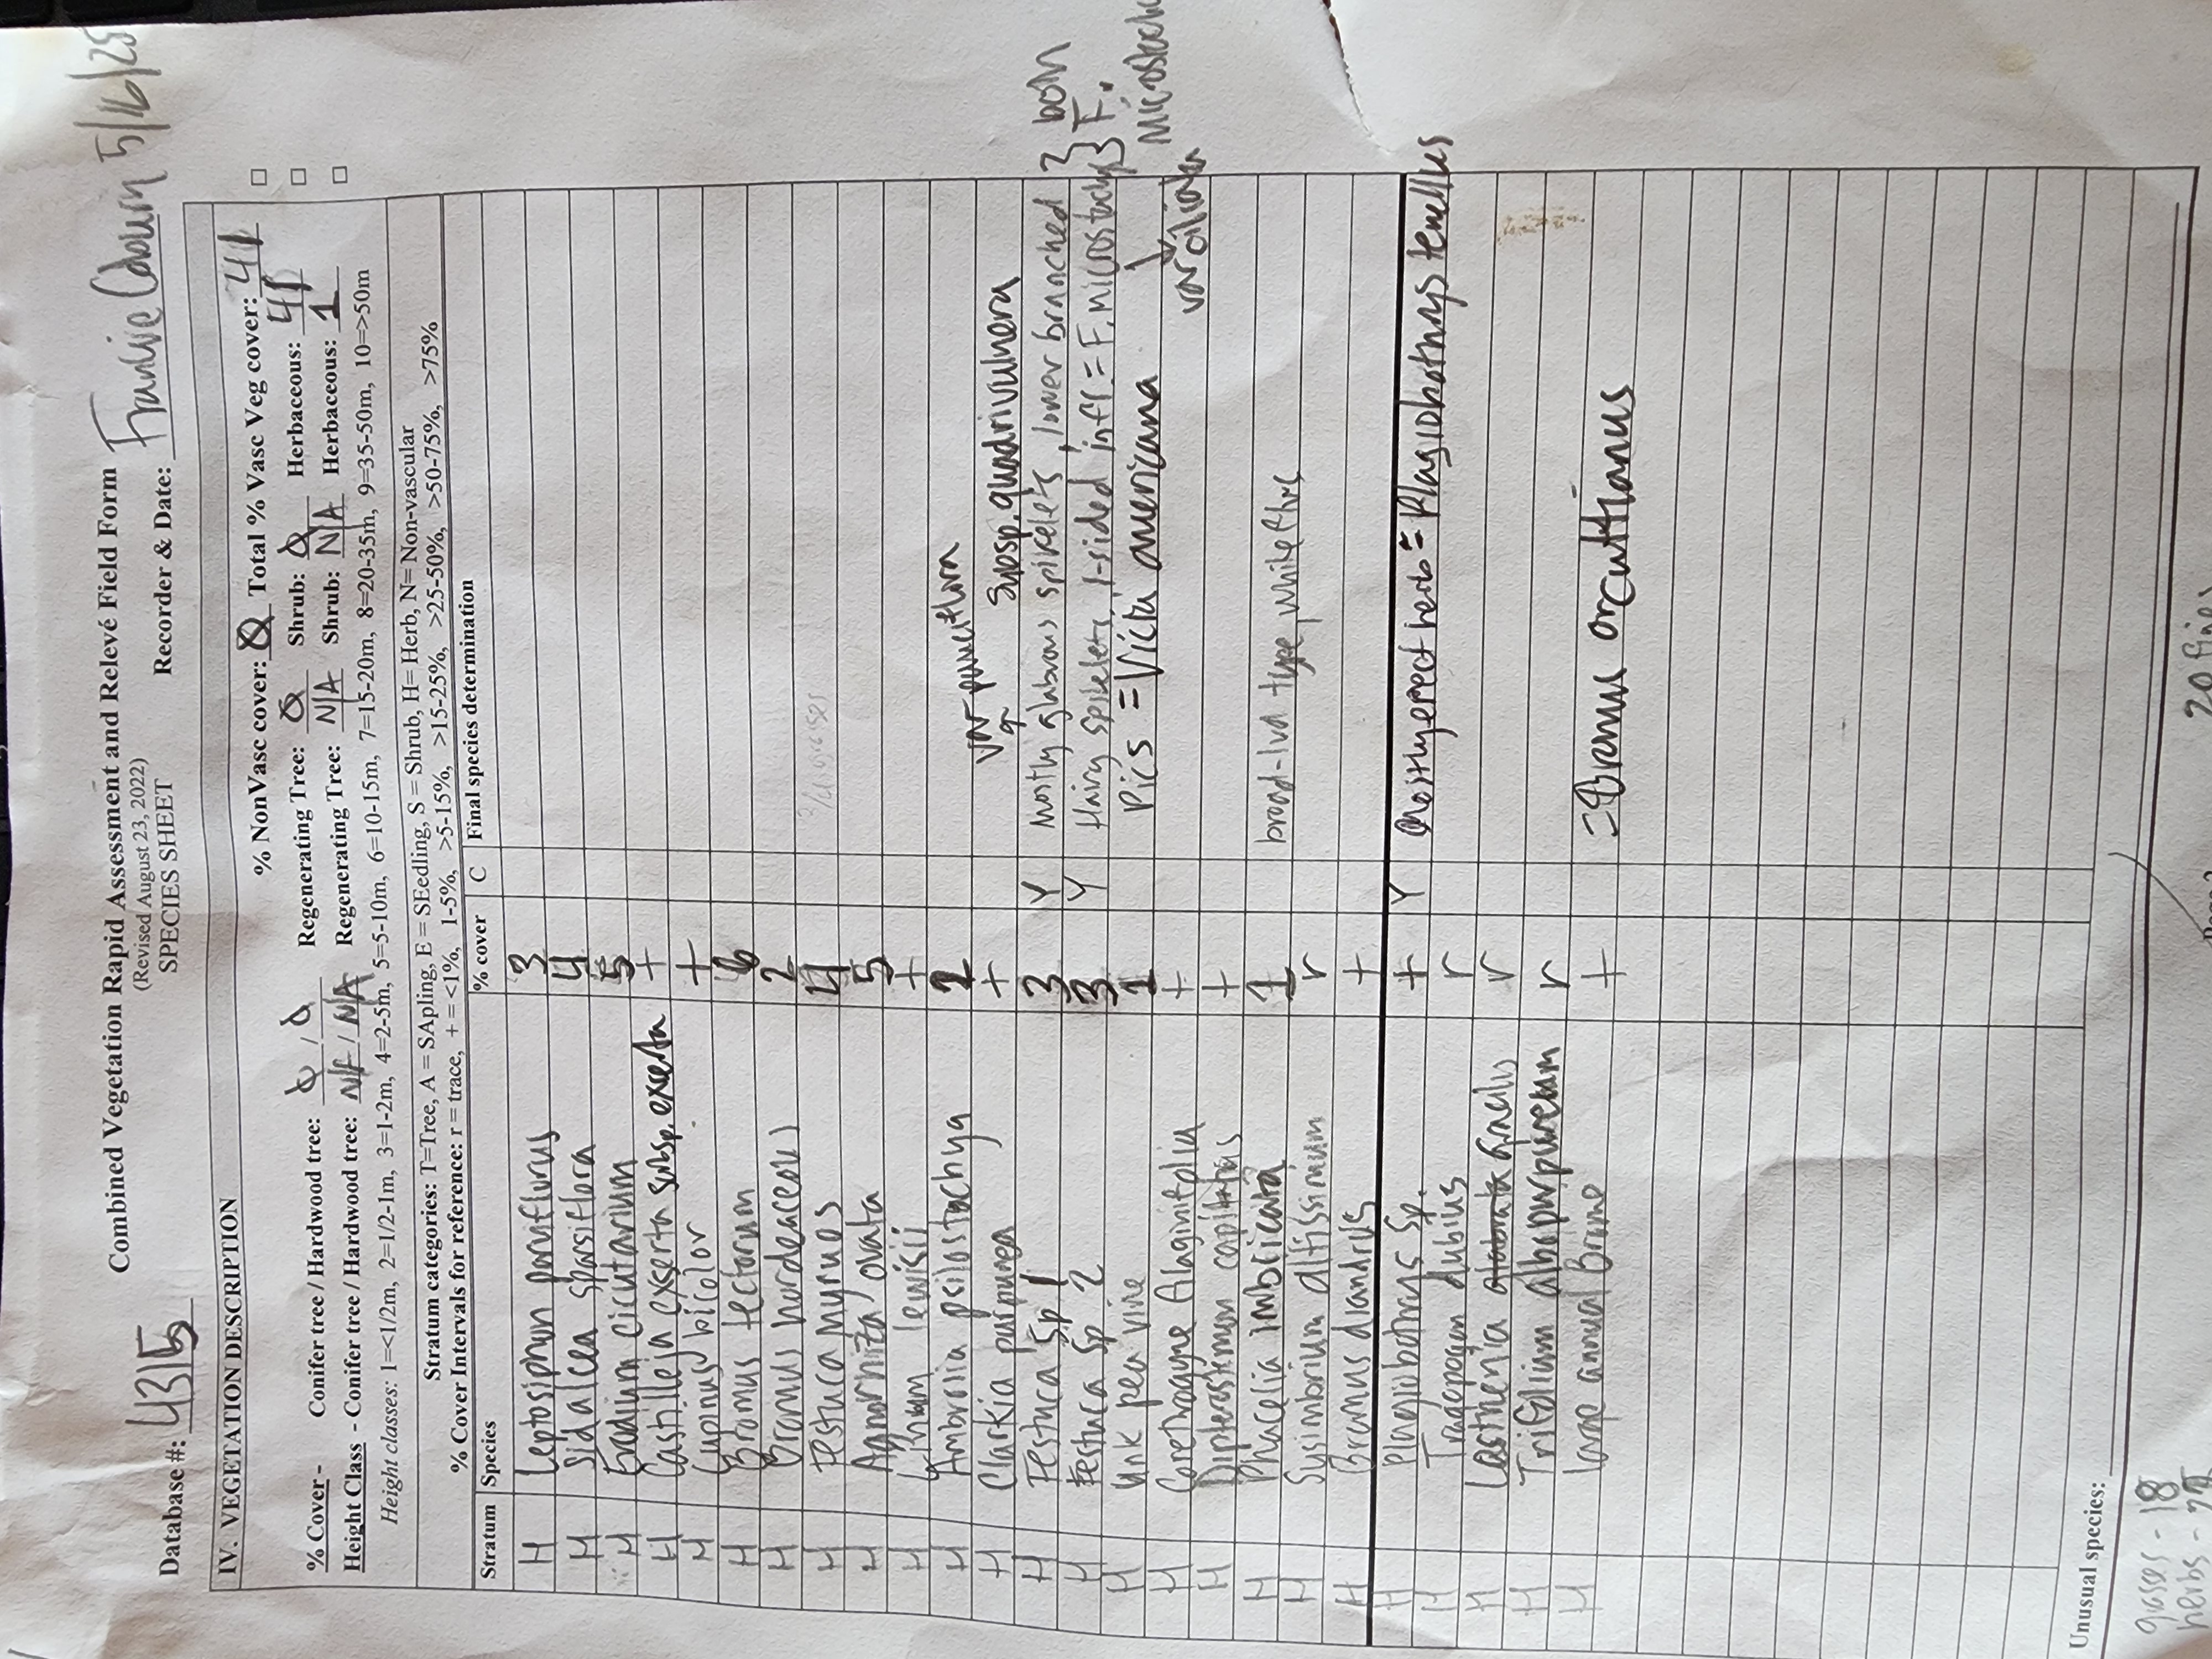 Combined Vegetation Rapid Assessment and Relevé Field Form
(Revised August 23, 2022)
SPECIES SHEET
Database #: 4315 Recorder & Date: 5/16/25
IV. VEGETATION DESCRIPTION
% NonVasc cover: 0 Total % Vasc Veg cover: 41
% Cover - Conifer tree / Hardwood tree: 0 / 0 Regenerating Tree: 0 Shrub: 0 Herbaceous: 41
Height Class - Conifer tree / Hardwood tree: N/A / N/A Regenerating Tree: N/A Shrub: N/A Herbaceous: 1
Height classes: 1=<1/2m, 2=1/2-1m, 3=1-2m, 4=2-5m, 5=5-10m, 6=10-15m, 7=15-20m, 8=20-35m, 9=35-50m, 10=>50m
Stratum categories: T=Tree, A = SApling, E = SEedling, S = Shrub, H= Herb, N= Non-vascular
% Cover Intervals for reference: r = trace, + = <1%, 1-5%, >5-15%, >15-25%, >25-50%, >50-75%, >75%
Stratum Species % cover C Final species determination
H Leptosiphon parviflorus 3
H Sidalcea sparsiflora 4
H Erodium cicutarium 5
H Castilleja exserta subsp. exserta +
H Lupinus bicolor +
H Bromus tectorum 6
H Bromus hordeaceus 2
H Festuca myuros 4
H Agnorhiza ovata 5
H Linum lewisii +
H Ambrosia psilostachya 2
H Clarkia purpurea + subsp. quadrivulnera
H Festuca sp 1 3 Y mostly glabrous spikelets, lower branched } both
H Festuca sp 2 3 Y Hairy spikelets, 1-sided infl = F. microstachys } F. microstachys
H Unk pea vine 1 Pics = Vicia americana
H Corethrogyne filaginifolia +
H Dipterostemon capitatus +
H Phacelia imbricata 1 broad-lvd type, white flwrs
H Sisimbrium altissimum r
H Bromus diandrus +
H Plagiobothrys sp. + Y mostly erect herb = Plagiobothrys tenellus
H Tragopogon dubius r
H Lasthenia gracilis r
H Trifolium albopurpureum r
H large annual Brome + = Bromus orcuttianus
Unusual species:
grasses - 18
herbs -